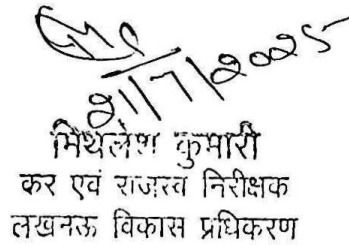 21/7/2025
मिथलेश कुमारी
कर एवं राजस्व निरीक्षक
लखनऊ विकास प्रधिकरण